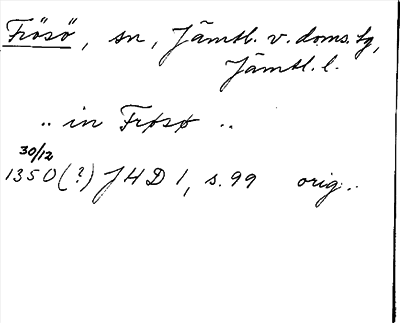 Frösö, sn, Jämtl. v. doms. tg,
Jämtl. l.
.. in Frøsø ..
30/12
1350 (?) JHD 1, s. 99 orig..